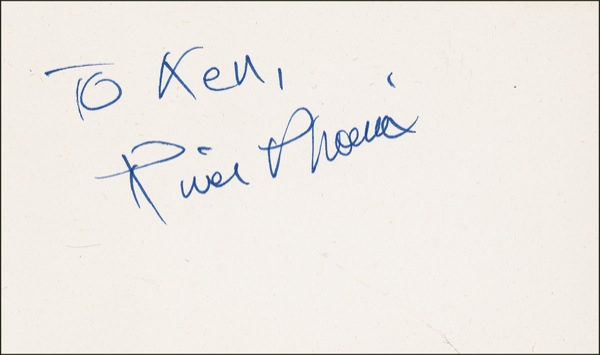 To Ken,
River Phoenix